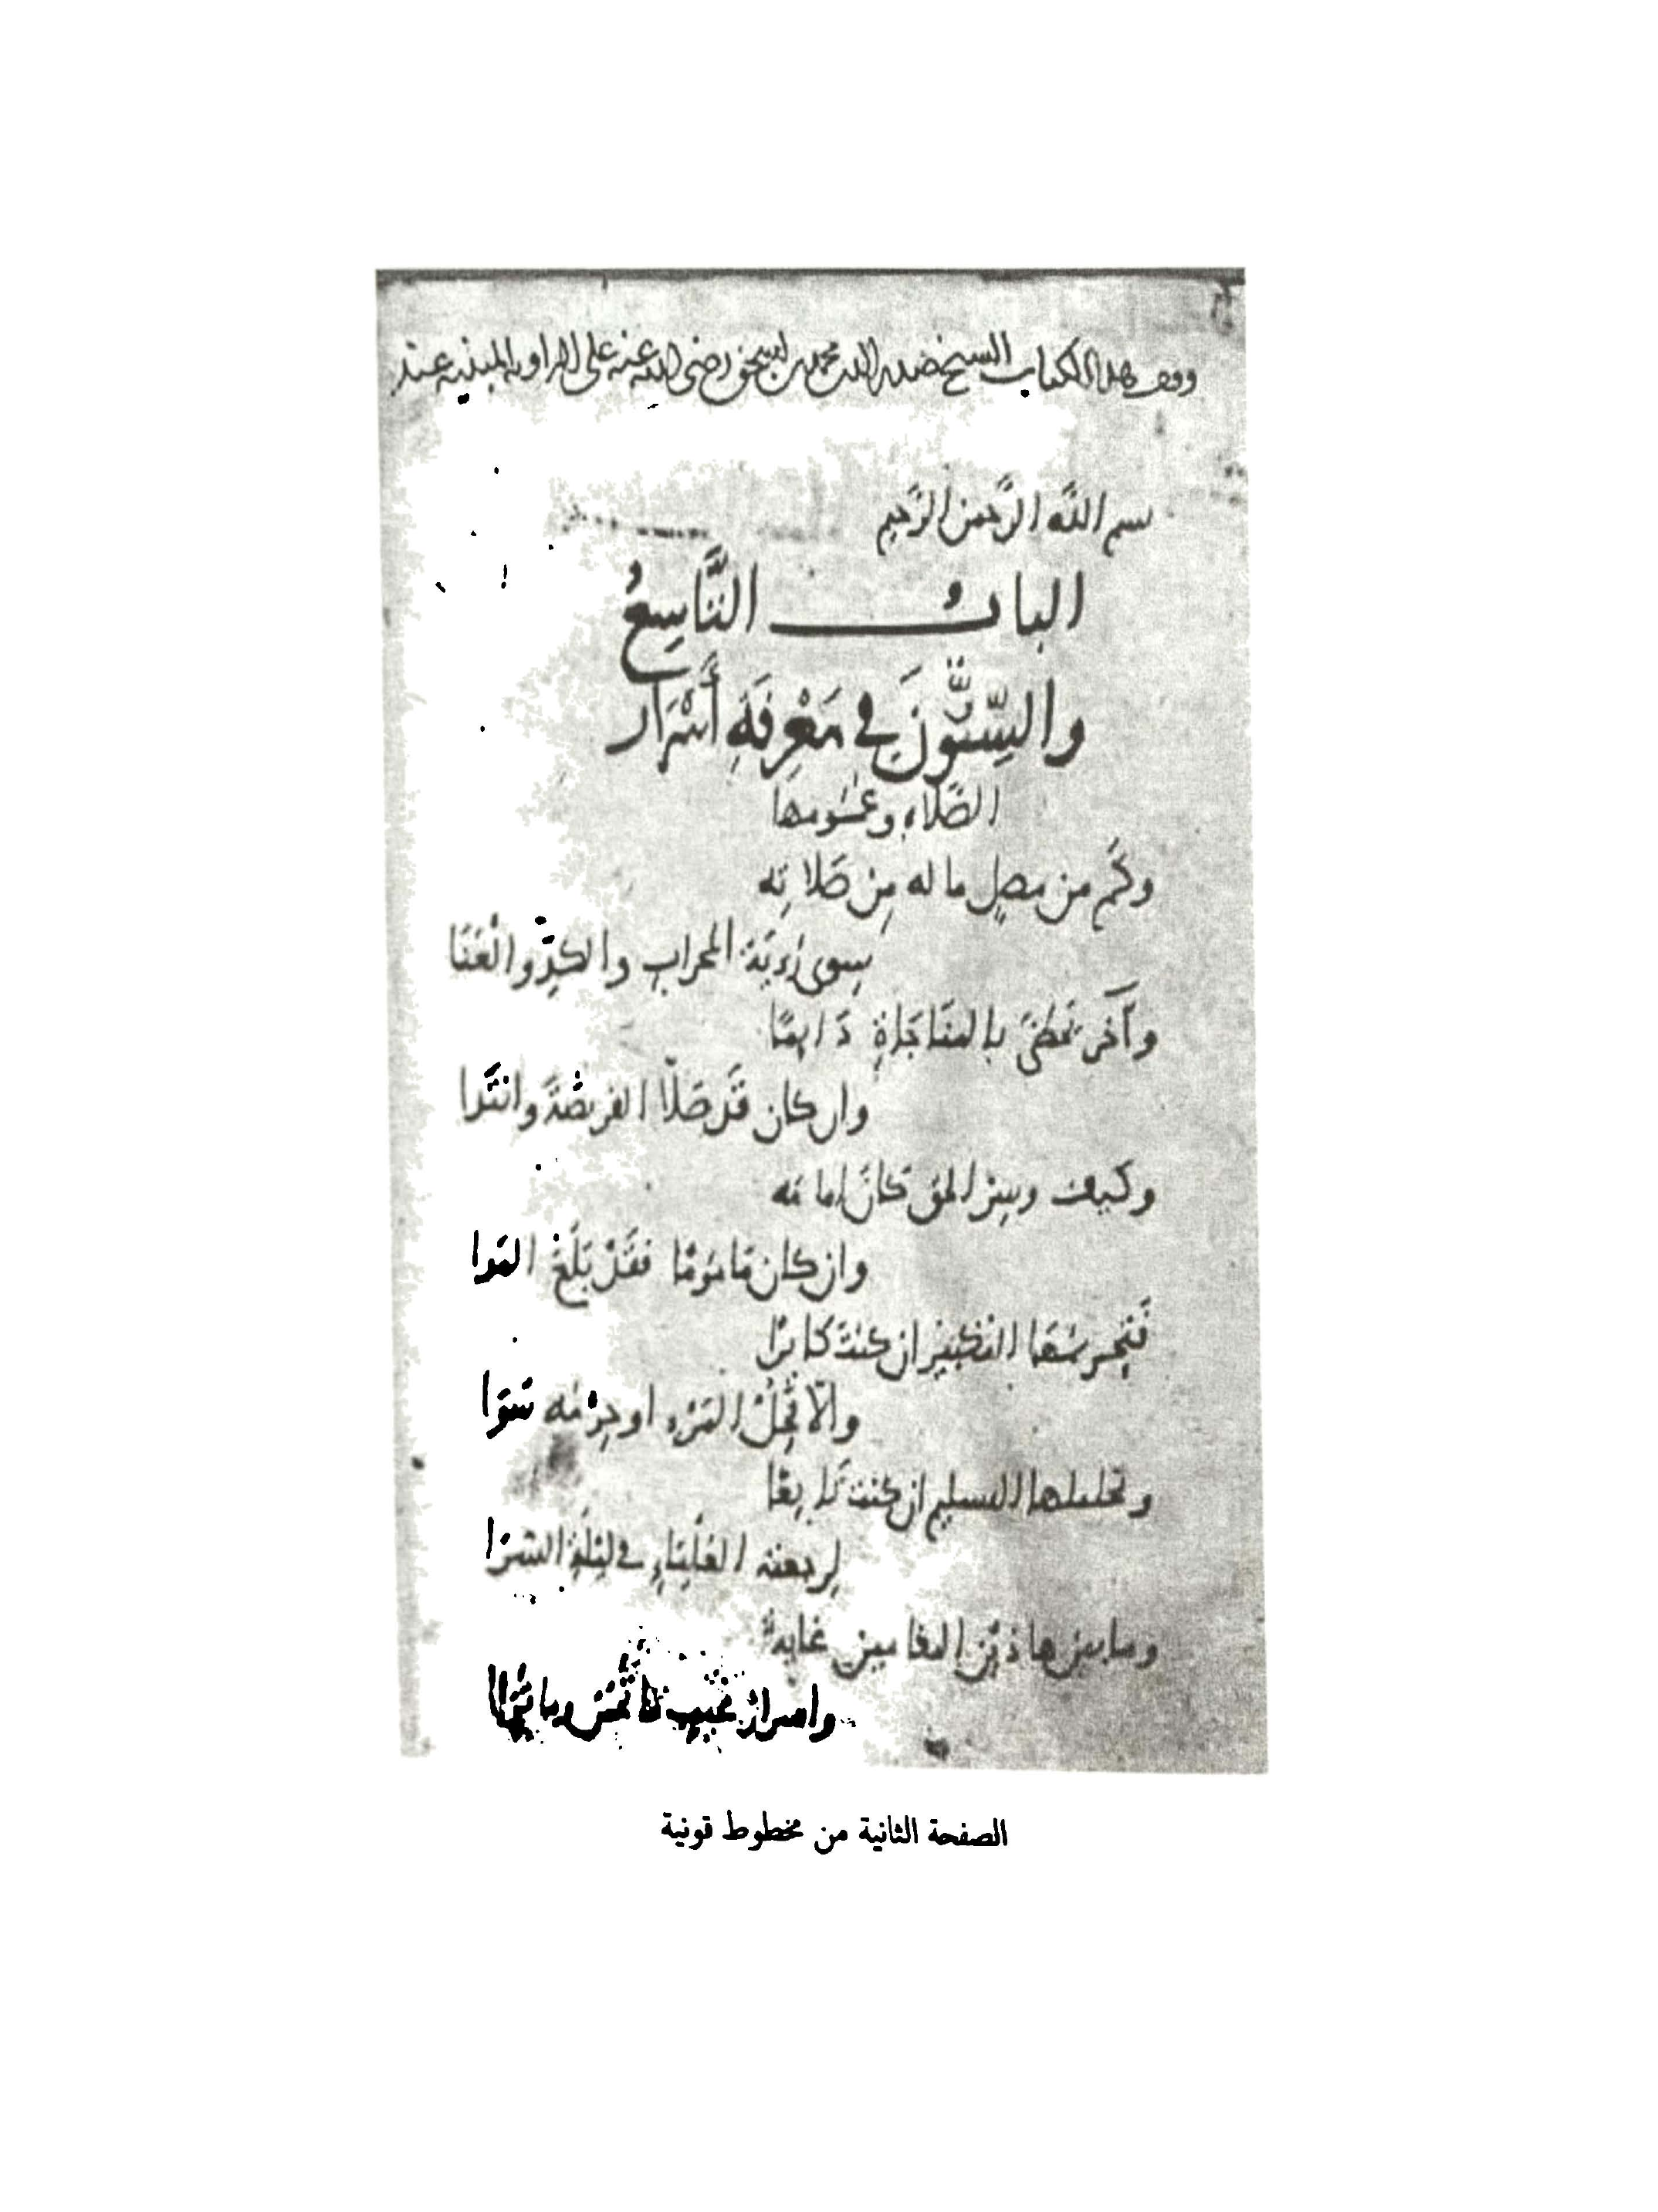 وقف هذا الكتاب الشيخ صدر الدين محمد بن اسحق رضي الله عنه على الزاوية المبنية عند
بسم الله الرَّحمن الرَّحيم
البابُ التَّاسِعُ
والسِّتُّونَ في مَعْرِفَةِ أَسْرَار
الصَّلاة وعمومها
وكَم من مصلٍ ما له مِن صَلاتِه
سِوى رُءيَة المحراب والكدِّ والعَنَا
وآخر تحظىَ بالمنَاجَاةِ دَايمًا
وان كان قَد صَلّا الفريضَة وابتَدا
وكيف وسِر الحق كانَ امامَه
وان كان مَامُومًا فقَدْ بَلَغ المَدا
فتحريمُها التكبيرُ ان كنت كابرًا
والّا فحِلُّ المَرْء او حِرْمُه سَوَا
وتحليلها التسليم ان كنت تَابِعًا
لِرجعته العَلْيَاءِ في لَيْلَةِ السُّرَا
وما بين هاذَيْن المقامين غايةٌ
واسرارُ غَيْبٍ مَا تُحَسُّ وما تُرَا
الصفحة الثانية من مخطوط قونية